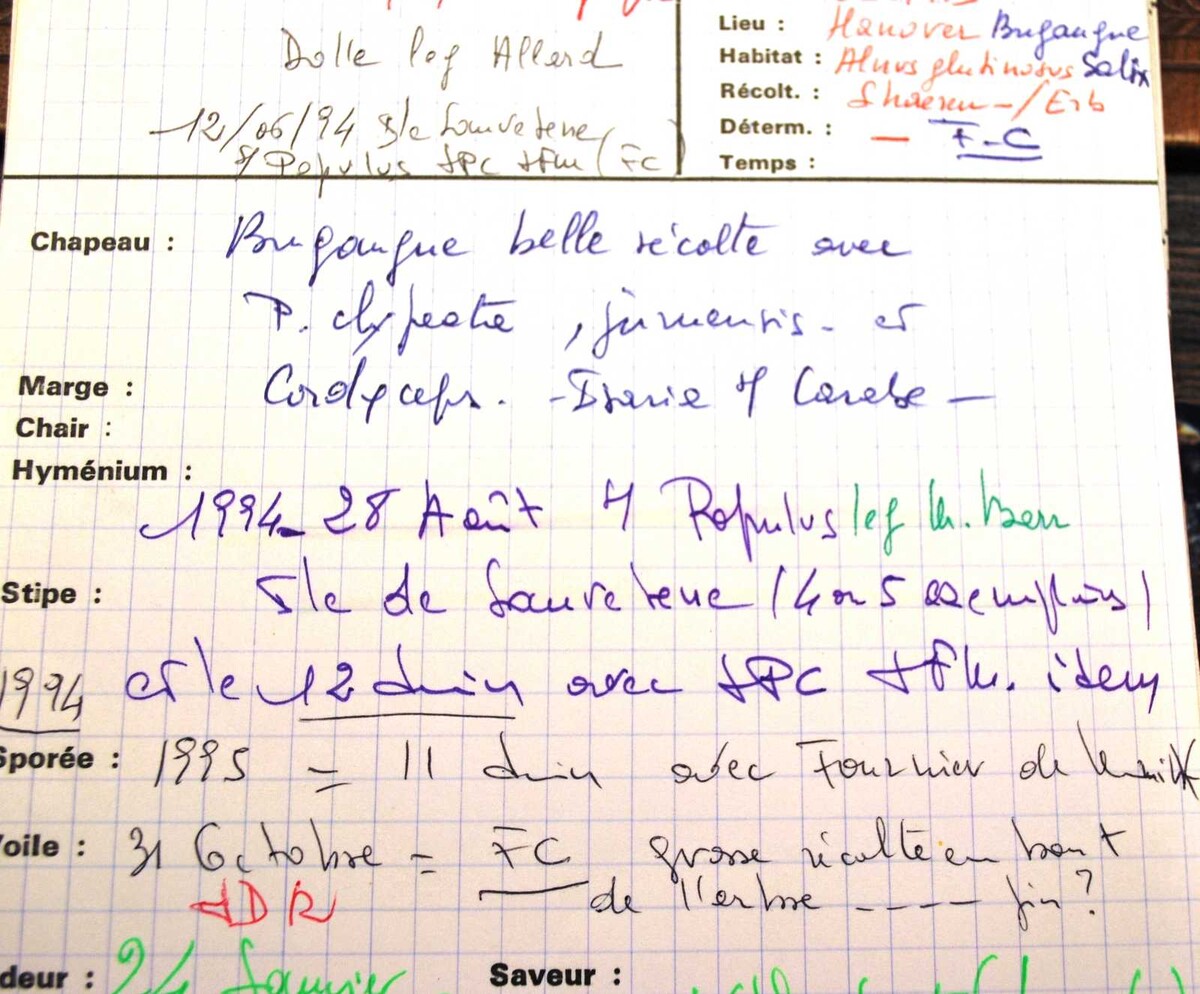 Dolle leg Allard
12/06/94 Isle Sauveterre
s/ Populus JPC JFM (FC)
Lieu : Hanover Bugangue
Habitat : Alnus glutinosus Salix
Récolt. : / Erb
Déterm. : — F-C
Temps :
Chapeau : Bugangue belle récolte avec
P. clypeata, et
Marge : Cordyceps. - Isaria s/ Carabe —
Chair :
Hyménium :
1994 - 28 Août s/ Populus leg
Stipe : Isle de Sauveterre (4 ou 5 exemplaires)
1994 et le 12 Juin avec JPC JFM. idem
Sporée : 1995 = 11 Juin avec Fournier de
Voile : 31 Octobre = FC grosse récolte en bout
JDR de l'arbre ---- fin ?
deur : 24 Janvier Saveur :